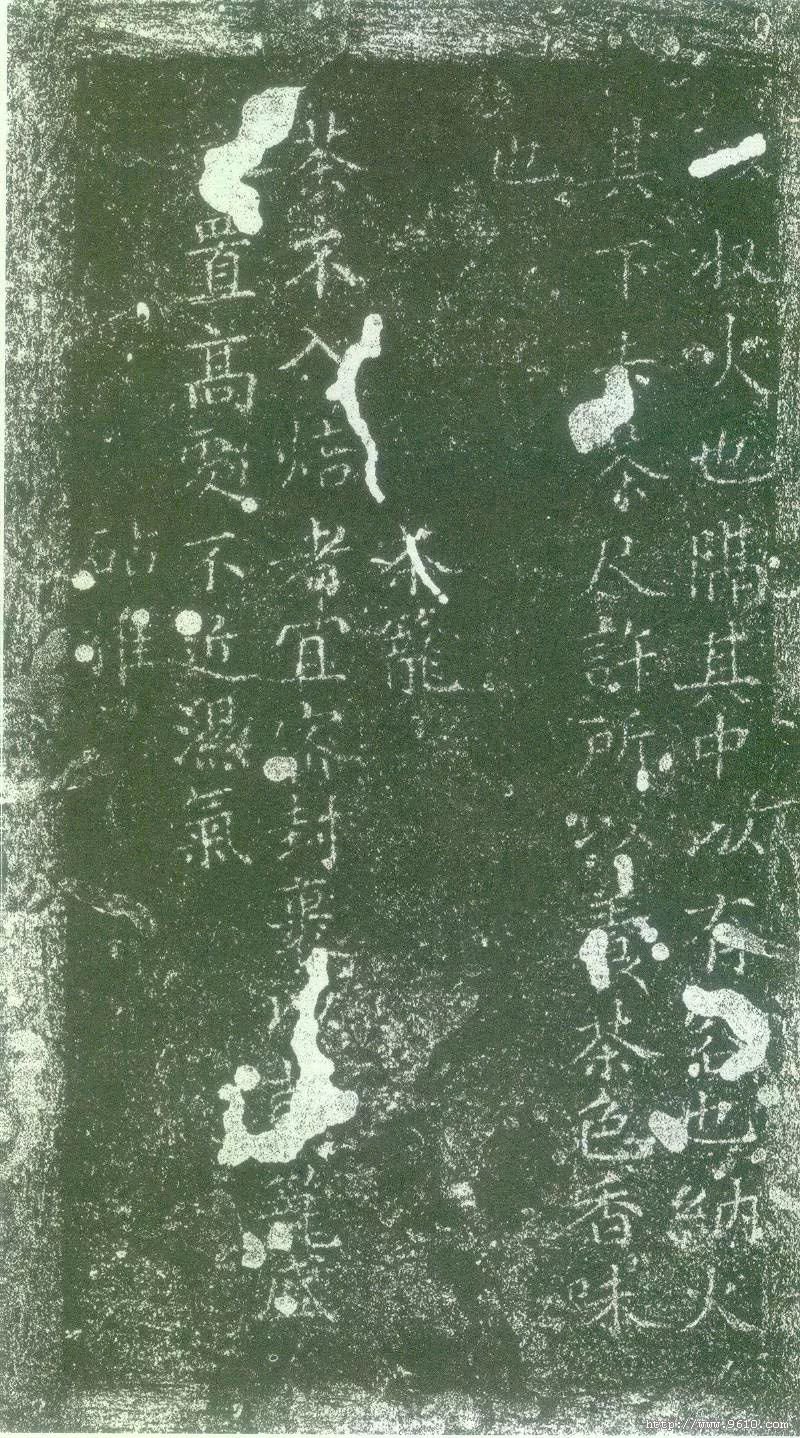 收火也隔其中以有容也納火
其下去茶尺許所以養茶色香味
也
茶籠
茶不入焙者宜密封裹以籠盛
置高處不近濕氣
砧椎
http://www.9610.com